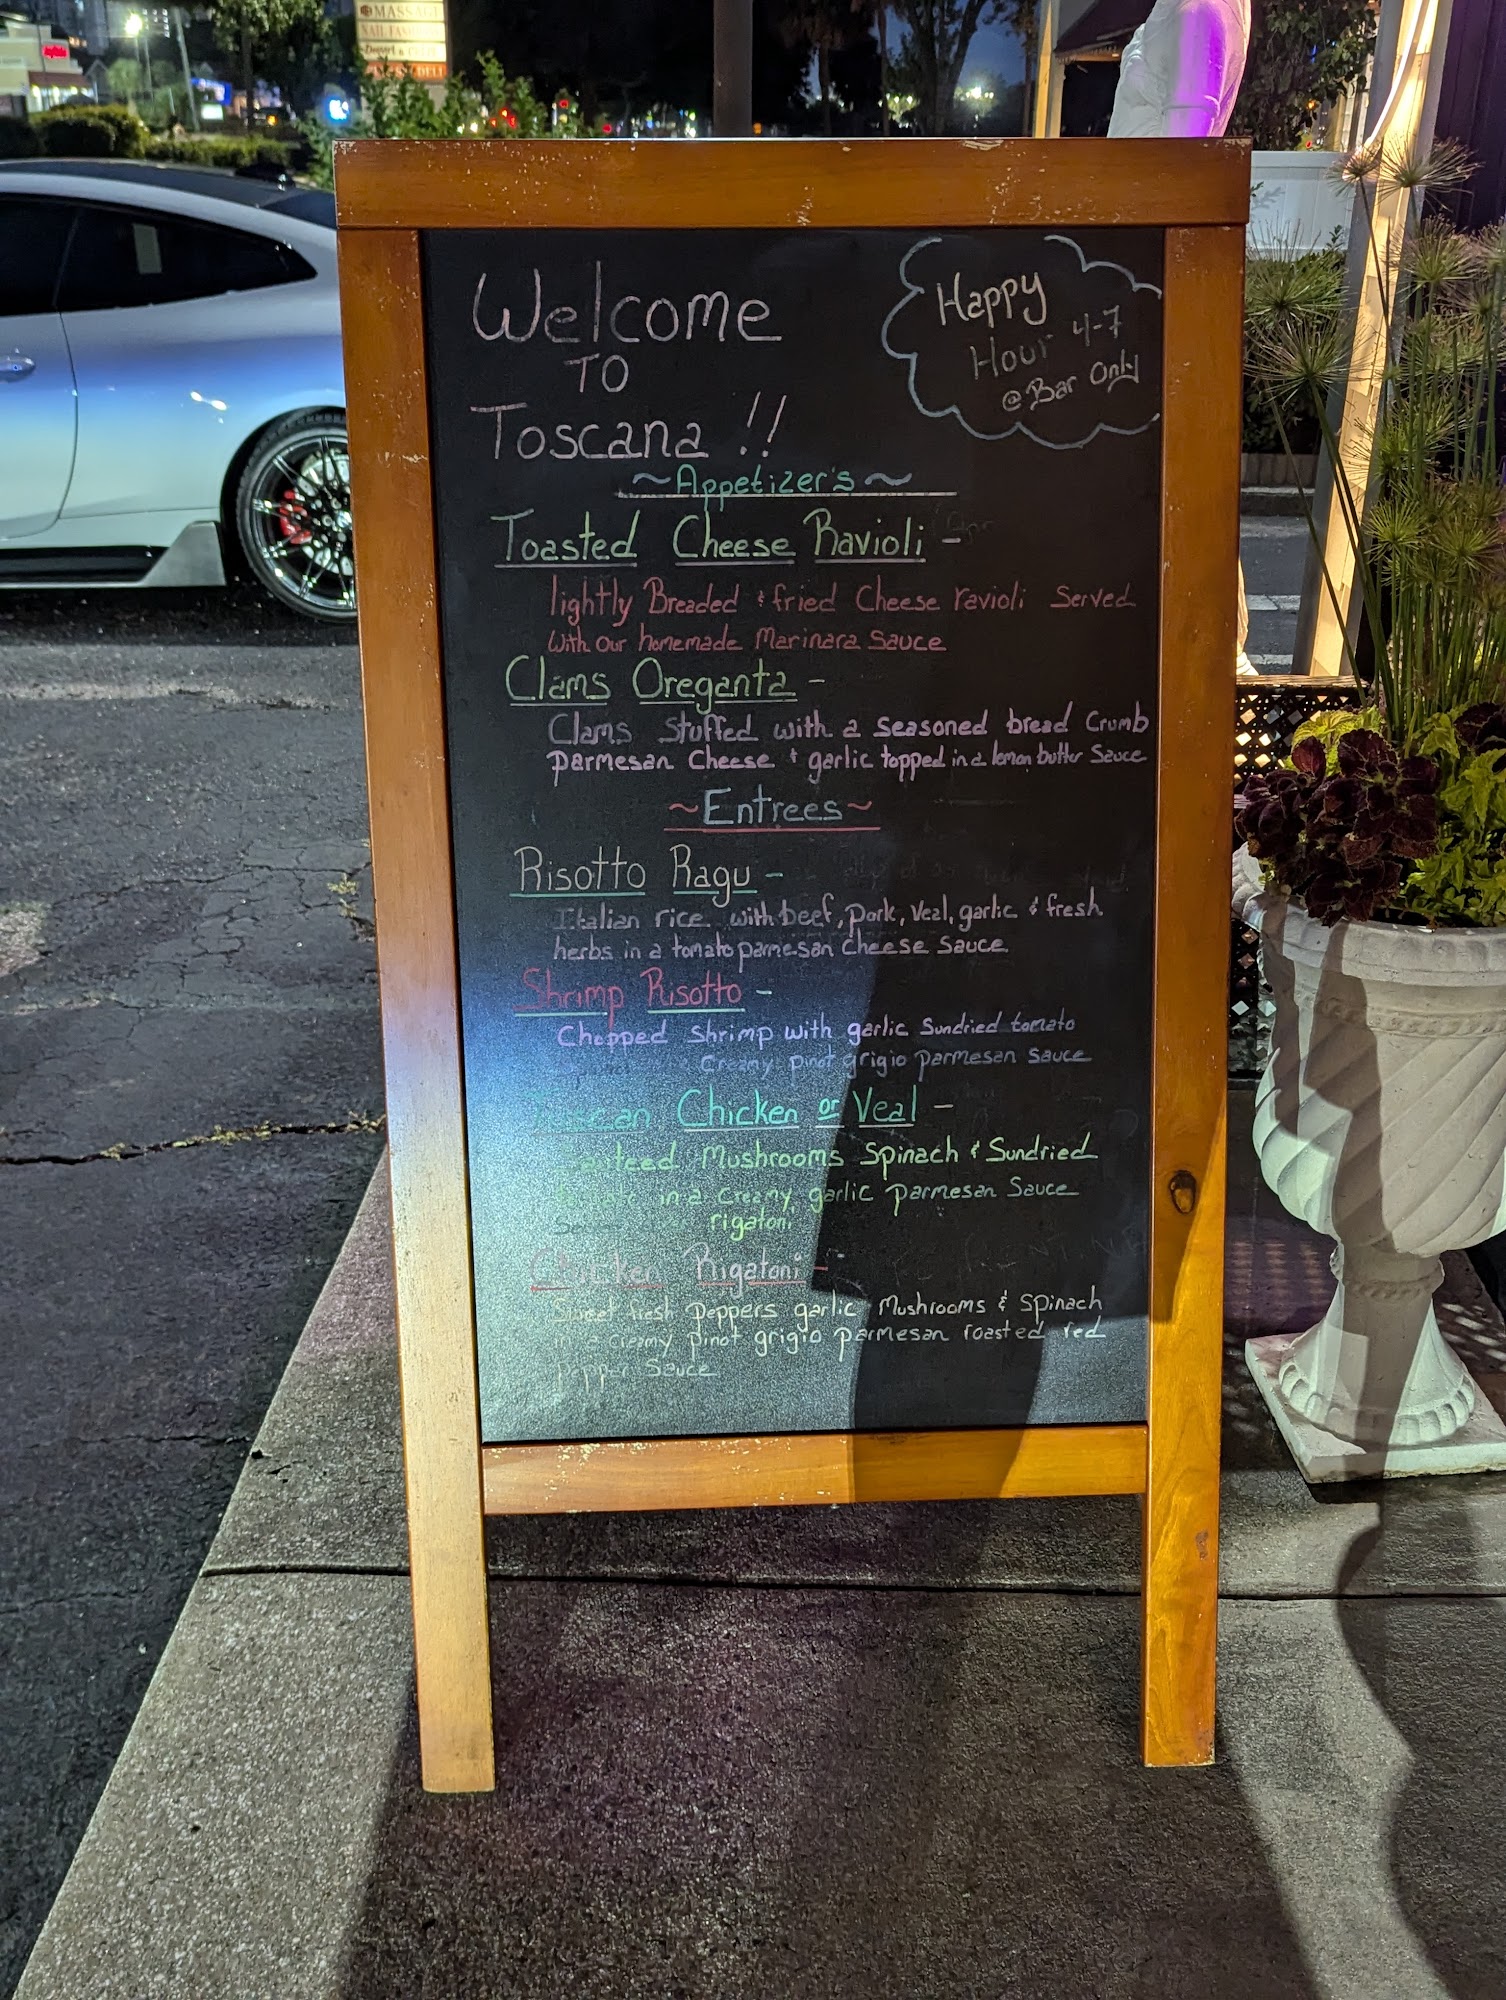 MASSAGE
NAIL FAN
Dessert &
DELI
Welcome
TO
Toscana !!
Happy
Hour 4-7
@ Bar Only
~Appetizer's~
Toasted Cheese Ravioli -
lightly Breaded & fried Cheese ravioli Served
with our homemade Marinara Sauce
Clams Oreganta -
Clams Stuffed with a seasoned bread Crumb
parmesan Cheese & garlic topped in a lemon butter Sauce
~Entrees~
Risotto Ragu -
Italian rice with beef, pork, Veal, garlic & fresh
herbs in a tomato parmesan Cheese Sauce
Shrimp Risotto -
Chopped Shrimp with garlic Sundried tomato
Creamy pinot grigio parmesan Sauce
Tuscan Chicken or Veal -
Sauteed Mushrooms Spinach & Sundried
in a creamy garlic parmesan Sauce
rigatoni
Chicken Rigatoni -
Sweet fresh peppers garlic Mushrooms & Spinach
in a creamy pinot grigio parmesan roasted red
pepper Sauce